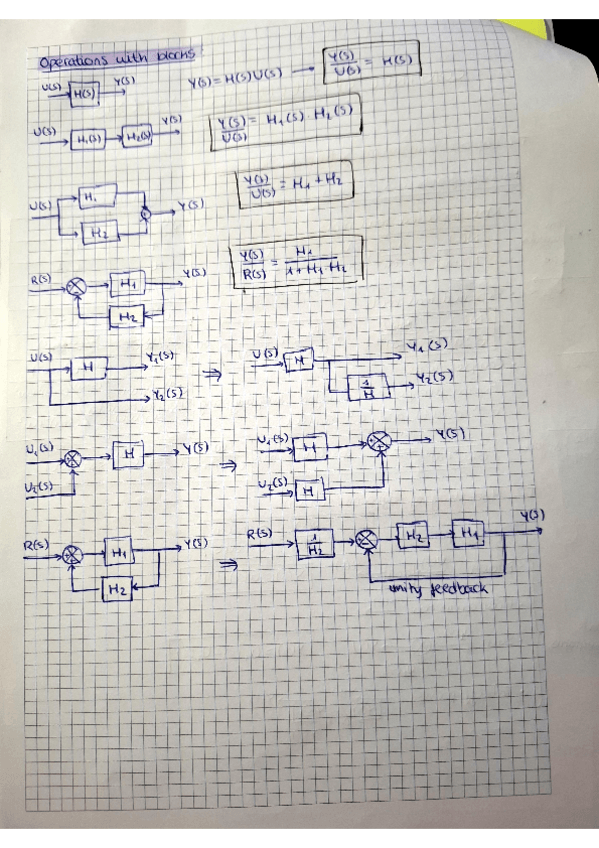 Operations with blocks
U(s) H(s) Y(s) Y(s) = H(s) U(s) → Y(s)/U(s) = H(s)
U(s) H1(s) H2(s) Y(s) Y(s)/U(s) = H1(s) H2(s)
U(s) H1 H2 Y(s) Y(s)/U(s) = H1 + H2
R(s) H1 H2 Y(s) Y(s)/R(s) = H1/(1 + H1 H2)
U(s) H Y1(s) Y2(s) ⇒ U(s) H Y1(s) 1/H Y2(s)
U1(s) U2(s) H Y(s) ⇒ U1(s) H U2(s) H Y(s)
R(s) H1 H2 Y(s) ⇒ R(s) 1/H2 H2 H1 Y(s)
unity feedback